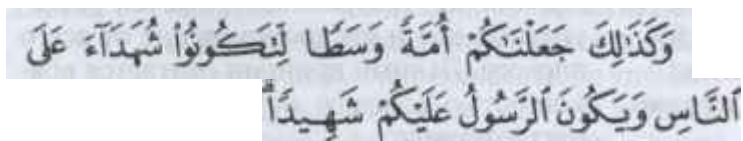 وَكَذَٰلِكَ جَعَلْنَـٰكُمْ أُمَّةً وَسَطًا لِّتَكُونُوا۟ شُهَدَآءَ عَلَى
ٱلنَّاسِ وَيَكُونَ ٱلرَّسُولُ عَلَيْكُمْ شَهِيدًاۗ